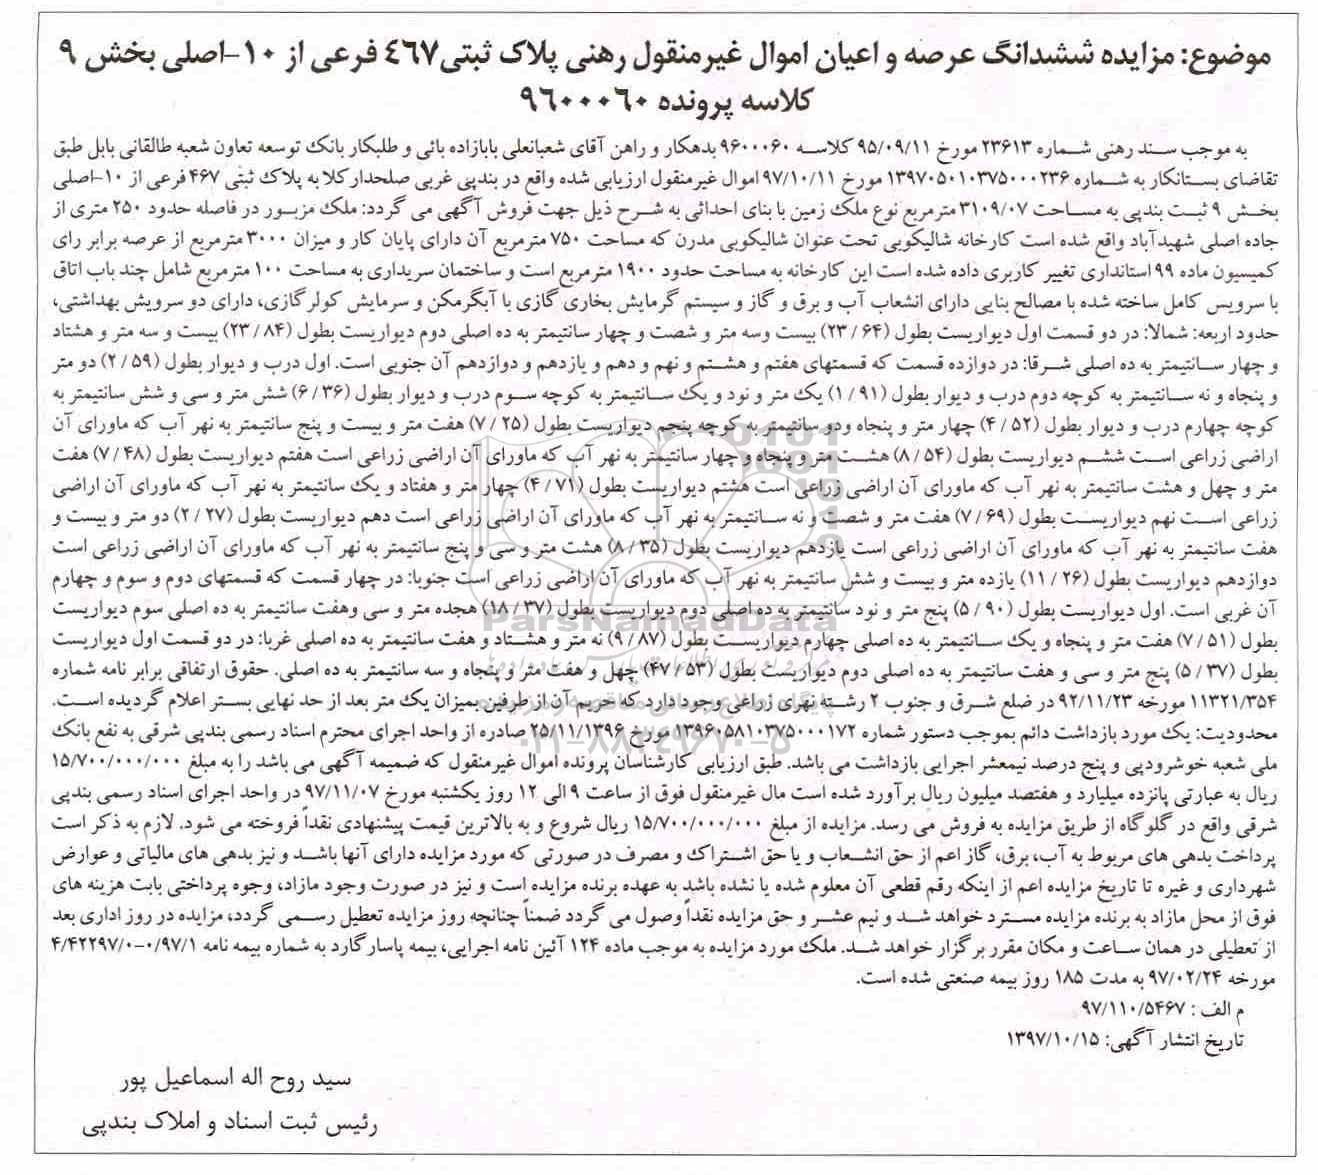 موضوع: مزایده ششدانگ عرصه و اعیان اموال غیرمنقول رهنی پلاک ثبتی٤٦٧ فرعی از ١٠-اصلی بخش ٩
کلاسه پرونده ٩٦٠٠٠٦٠
به موجب سند رهنی شماره ۲۳۶۱۳ مورخ ۹۵/۰۹/۱۱ کلاسه ۹۶۰۰۰۶۰ بدهکار و راهن آقای شعبانعلی بابازاده بائی و طلبکار بانک توسعه تعاون شعبه طالقانی بابل طبق
تقاضای بستانکار به شماره ۱۳۹۷۰۵۰۱۰۳۷۵۰۰۰۲۳۶ مورخ ۹۷/۱۰/۱۱ اموال غیرمنقول ارزیابی شده واقع در بندپی غربی صلحدارکلا به پلاک ثبتی ۴۶۷ فرعی از ۱۰-اصلی
بخش ۹ ثبت بندپی به مساحت ۳۱۰۹/۰۷ مترمربع نوع ملک زمین با بنای احداثی به شرح ذیل جهت فروش آگهی می گردد: ملک مزبور در فاصله حدود ۲۵۰ متری از
جاده اصلی شهیدآباد واقع شده است کارخانه شالیکوبی تحت عنوان شالیکوبی مدرن که مساحت ۷۵۰ مترمربع آن دارای پایان کار و میزان ۳۰۰۰ مترمربع از عرصه برابر رای
کمیسیون ماده ۹۹ استانداری تغییر کاربری داده شده است این کارخانه به مساحت حدود ۱۹۰۰ مترمربع است و ساختمان سریداری به مساحت ۱۰۰ مترمربع شامل چند باب اتاق
با سرویس کامل ساخته شده با مصالح بنایی دارای انشعاب آب و برق و گاز و سیستم گرمایش بخاری گازی با آبگرمکن و سرمایش کولر گازی، دارای دو سرویش بهداشتی،
حدود اربعه: شمالا: در دو قسمت اول دیواریست بطول (۲۳/۶۴) بیست وسه متر و شصت و چهار سانتیمتر به ده اصلی دوم دیواریست بطول (۲۳/۸۴) بیست و سه متر و هشتاد
و چهار سانتیمتر به ده اصلی شرقا: در دوازده قسمت که قسمتهای هفتم و هشتم و نهم و دهم و یازدهم و دوازدهم آن جنوبی است. اول درب و دیوار بطول (۲/۵۹) دو متر
و پنجاه و نه سانتیمتر به کوچه دوم درب و دیوار بطول (۱/۹۱) یک متر و نود و یک سانتیمتر به کوچه سوم درب و دیوار بطول (۶/۳۶) شش متر و سی و شش سانتیمتر به
کوچه چهارم درب و دیوار بطول (۴/۵۲) چهار متر و پنجاه ودو سانتیمتر به کوچه پنجم دیواریست بطول (۷/۲۵) هفت متر و بیست و پنج سانتیمتر به نهر آب که ماورای آن
اراضی زراعی است ششم دیواریست بطول (۸/۵۴) هشت متر و پنجاه و چهار سانتیمتر به نهر آب که ماورای آن اراضی زراعی است هفتم دیواریست بطول (۷/۴۸) هفت
متر و چهل و هشت سانتیمتر به نهر آب که ماورای آن اراضی زراعی است هشتم دیواریست بطول (۴/۷۱) چهار متر و هفتاد و یک سانتیمتر به نهر آب که ماورای آن اراضی
زراعی است نهم دیواریست بطول (۷/۶۹) هفت متر و شصت و نه سانتیمتر به نهر آب که ماورای آن اراضی زراعی است دهم دیواریست بطول (۲/۲۷) دو متر و بیست و
هفت سانتیمتر به نهر آب که ماورای آن اراضی زراعی است یازدهم دیواریست بطول (۸/۳۵) هشت متر و سی و پنج سانتیمتر به نهر آب که ماورای آن اراضی زراعی است
دوازدهم دیواریست بطول (۱۱/۲۶) یازده متر و بیست و شش سانتیمتر به نهر آب که ماورای آن اراضی زراعی است جنوبا: در چهار قسمت که قسمتهای دوم و سوم و چهارم
آن غربی است. اول دیواریست بطول (۵/۹۰) پنج متر و نود سانتیمتر به ده اصلی دوم دیواریست بطول (۱۸/۳۷) هجده متر و سی وهفت سانتیمتر به ده اصلی سوم دیواریست
بطول (۷/۵۱) هفت متر و پنجاه و یک سانتیمتر به ده اصلی چهارم دیواریست بطول (۹/۸۷) نه متر و هشتاد و هفت سانتیمتر به ده اصلی غربا: در دو قسمت اول دیواریست
بطول (۵/۳۷) پنج متر و سی و هفت سانتیمتر به ده اصلی دوم دیواریست بطول (۴۷/۵۳) چهل و هفت متر و پنجاه و سه سانتیمتر به ده اصلی. حقوق ارتفاقی برابر نامه شماره
۱۱۳۲۱/۳۵۴ مورخه ۹۲/۱۱/۲۳ در ضلع شرق و جنوب ۲ رشته نهری زراعی وجود دارد که حریم آن از طرفین بمیزان یک متر بعد از حد نهایی بستر اعلام گردیده است.
محدودیت: یک مورد بازداشت دائم بموجب دستور شماره ۱۳۹۶۰۵۸۱۰۳۷۵۰۰۰۱۷۲ مورخ ۲۵/۱۱/۱۳۹۶ صادره از واحد اجرای محترم اسناد رسمی بندپی شرقی به نفع بانک
ملی شعبه خوشرودپی و پنج درصد نیمعشر اجرایی بازداشت می باشد. طبق ارزیابی کارشناسان پرونده اموال غیرمنقول که ضمیمه آگهی می باشد را به مبلغ ۱۵/۷۰۰/۰۰۰/۰۰۰
ریال به عبارتی پانزده میلیارد و هفتصد میلیون ریال برآورد شده است مال غیرمنقول فوق از ساعت ۹ الی ۱۲ روز یکشنبه مورخ ۹۷/۱۱/۰۷ در واحد اجرای اسناد رسمی بندپی
شرقی واقع در گلوگاه از طریق مزایده به فروش می رسد. مزایده از مبلغ ۱۵/۷۰۰/۰۰۰/۰۰۰ ریال شروع و به بالاترین قیمت پیشنهادی نقداً فروخته می شود. لازم به ذکر است
پرداخت بدهی های مربوط به آب، برق، گاز اعم از حق انشعاب و یا حق اشتراک و مصرف در صورتی که مورد مزایده دارای آنها باشد و نیز بدهی های مالیاتی و عوارض
شهرداری و غیره تا تاریخ مزایده اعم از اینکه رقم قطعی آن معلوم شده یا نشده باشد به عهده برنده مزایده است و نیز در صورت وجود مازاد، وجوه پرداختی بابت هزینه های
فوق از محل مازاد به برنده مزایده مسترد خواهد شد و نیم عشر و حق مزایده نقداً وصول می گردد ضمناً چنانچه روز مزایده تعطیل رسمی گردد، مزایده در روز اداری بعد
از تعطیلی در همان ساعت و مکان مقرر برگزار خواهد شد. ملک مورد مزایده به موجب ماده ۱۲۴ آئین نامه اجرایی، بیمه پاسارگارد به شماره بیمه نامه ۴/۴۲۲۹۷/۰-۰/۹۷/۱
مورخه ۹۷/۰۲/۲۴ به مدت ۱۸۵ روز بیمه صنعتی شده است.
م الف : ۹۷/۱۱۰/۵۴۶۷
تاریخ انتشار آگهی: ۱۳۹۷/۱۰/۱۵
سید روح اله اسماعیل پور
رئیس ثبت اسناد و املاک بندپی
ParsNamadData
۰۲۱-۸۸۳۴۹۶۷۰-۵